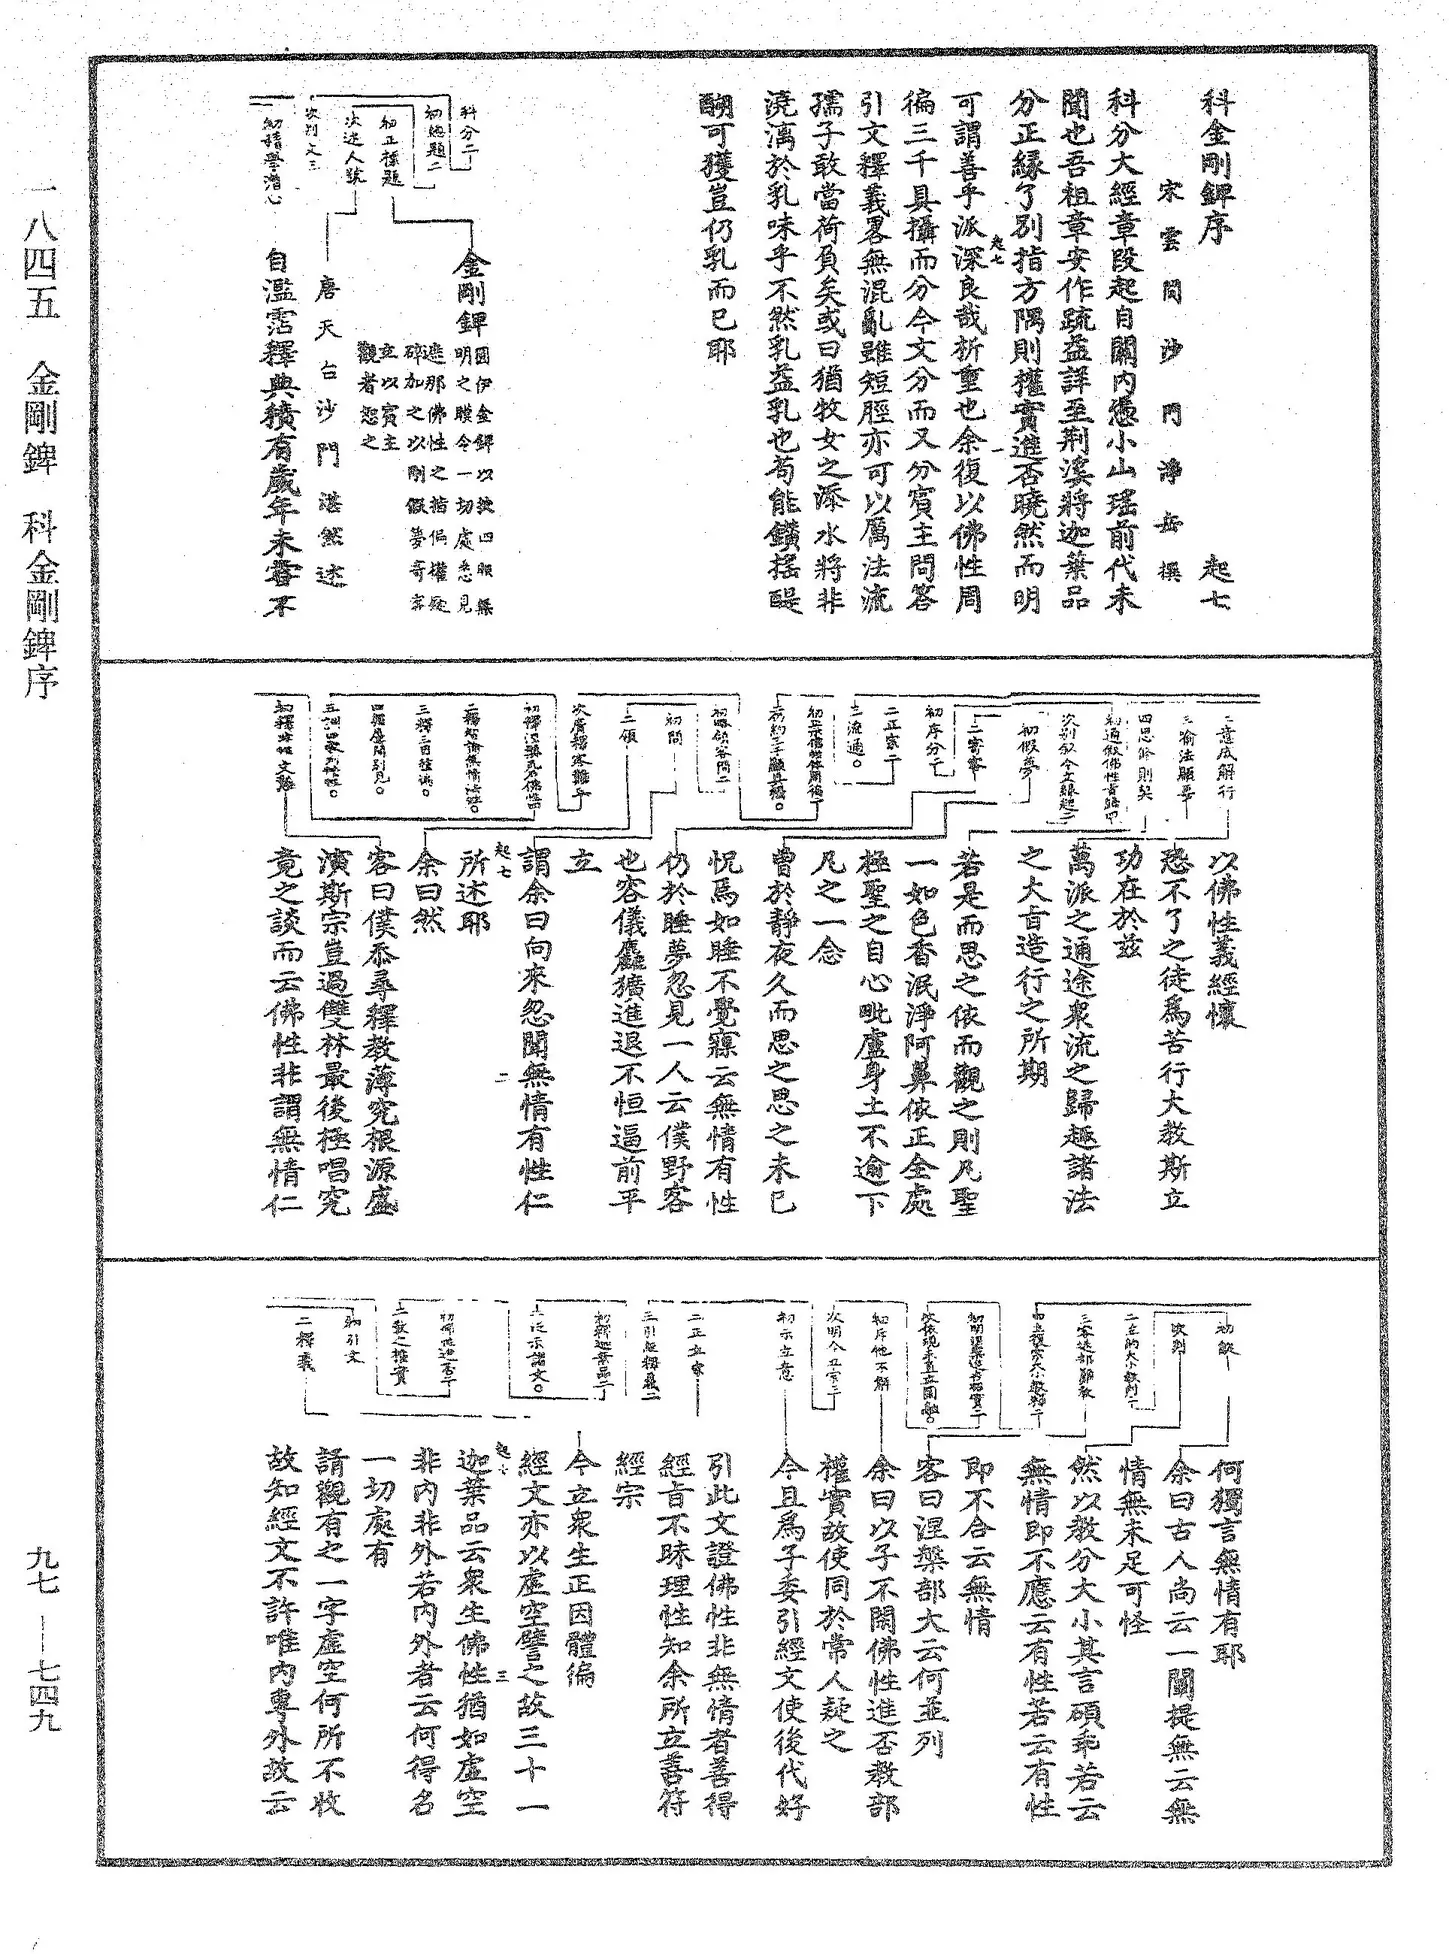 科金剛錍序
起七
宋雲間沙門淨岳撰
科分大經章段起自關內憑小山瑤前代未
聞也吾祖章安作疏益詳至荆溪將迦葉品
分正緣了別指方隅則權實進否曉然而明
可謂善乎派深良哉析重也余復以佛性周
徧三千具攝而分今文分而又分賓主問答
引文釋義畧無混亂雖短脛亦可以厲法流
孺子敢當荷負矣或曰猶牧女之添水將非
澆漓於乳味乎不然乳益乳也苟能鑽搖醍
醐可獲豈仍乳而已耶
起七
一
科分二
初總題二
初正標題
次述人號
次判文三
金剛錍
圓伊金錍以抉四眼無
明之膜令一切處悉見
遮那佛性之指偏權疑
碎加之以剛假夢寄客
立以賓主
觀者恕之
唐天台沙門湛然述
自濫霑釋典積有歲年未嘗不
以佛性義經懷
恐不了之徒爲苦行大教斯立
功在於茲
萬派之通途衆流之歸趣諸法
之大旨造行之所期
若是而思之依而觀之則凡聖
一如色香泯淨阿鼻依正全處
極聖之自心毗盧身土不逾下
凡之一念
曾於靜夜久而思之思之未已
怳焉如睡不覺寱云無情有性
仍於睡夢忽見一人云僕野客
也容儀麤獷進退不恒逼前平
立
謂余曰向來忽聞無情有性仁
所述耶
余曰然
客曰僕忝尋釋教薄究根源盛
演斯宗豈過雙林最後極唱究
竟之談而云佛性非謂無情仁
起七
二
二意成解行
三喻法願要
四思修則契
初假夢
二寄客
初序分二
二正宗二
三流通。
初問
二領
次廣釋客難二
三釋三自種遍。
何獨言無情有耶
余曰古人尚云一闡提無云無
情無未足可怪
然以教分大小其言碩乖若云
無情即不應云有性若云有性
即不合云無情
客曰涅槃部大云何並列
余曰以子不閑佛性進否教部
權實故使同於常人疑之
今且爲子委引經文使後代好
引此文證佛性非無情者善得
經旨不昧理性知余所立善符
經宗
今立衆生正因體徧
經文亦以虛空譬之故三十一
迦葉品云衆生佛性猶如虛空
非內非外若內外者云何得名
一切處有
請觀有之一字虛空何所不收
故知經文不許唯內專外故云
起七
三
初縱
次判
二立約大小教判二
初斥他不解
次明今正宗三
初示立意
二正立宗
三引經釋義二
初釋迦葉品二
二泛示諸文。
二教之權實
初引文
二釋義
一八四五 金剛錍 科金剛錍序
九七—七四九